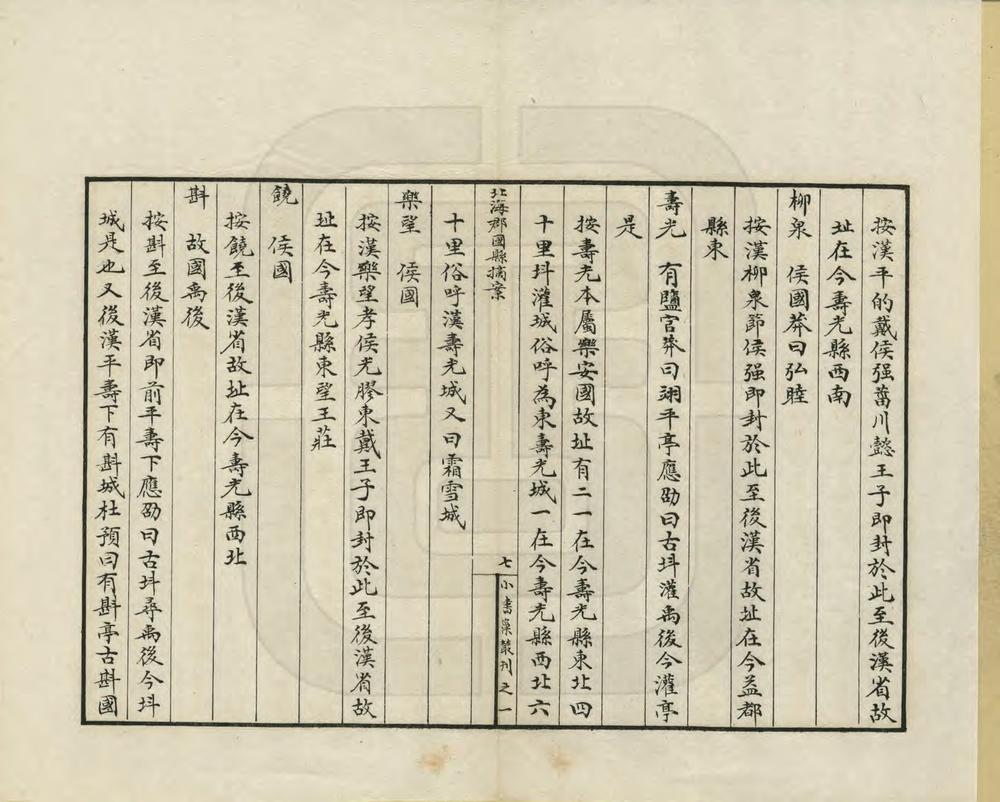 按漢平的戴侯强菑川懿王子即封於此至後漢省故
址在今壽光縣西南
柳泉　侯國莽曰弘睦
按漢柳泉節侯强即封於此至後漢省故址在今益都
縣東
壽光　有鹽官莽曰翊平亭應劭曰古㪷灌禹後今灌亭
是
按壽光本屬樂安國故址有二一在今壽光縣東北四
十里㪷灌城俗呼為東壽光城一在今壽光縣西北六
北海郡國縣摘案
七
小書巢叢刊之一
十里俗呼漢壽光城又曰霜雪城
樂望　侯國
按漢樂望孝侯光膠東戴王子即封於此至後漢省故
址在今壽光縣東望王莊
饒　侯國
按饒至後漢省故址在今壽光縣西北
斟　故國禹後
按斟至後漢省即前平壽下應劭曰古㪷尋禹後今㪷
城是也又後漢平壽下有斟城杜預曰有斟亭古斟國